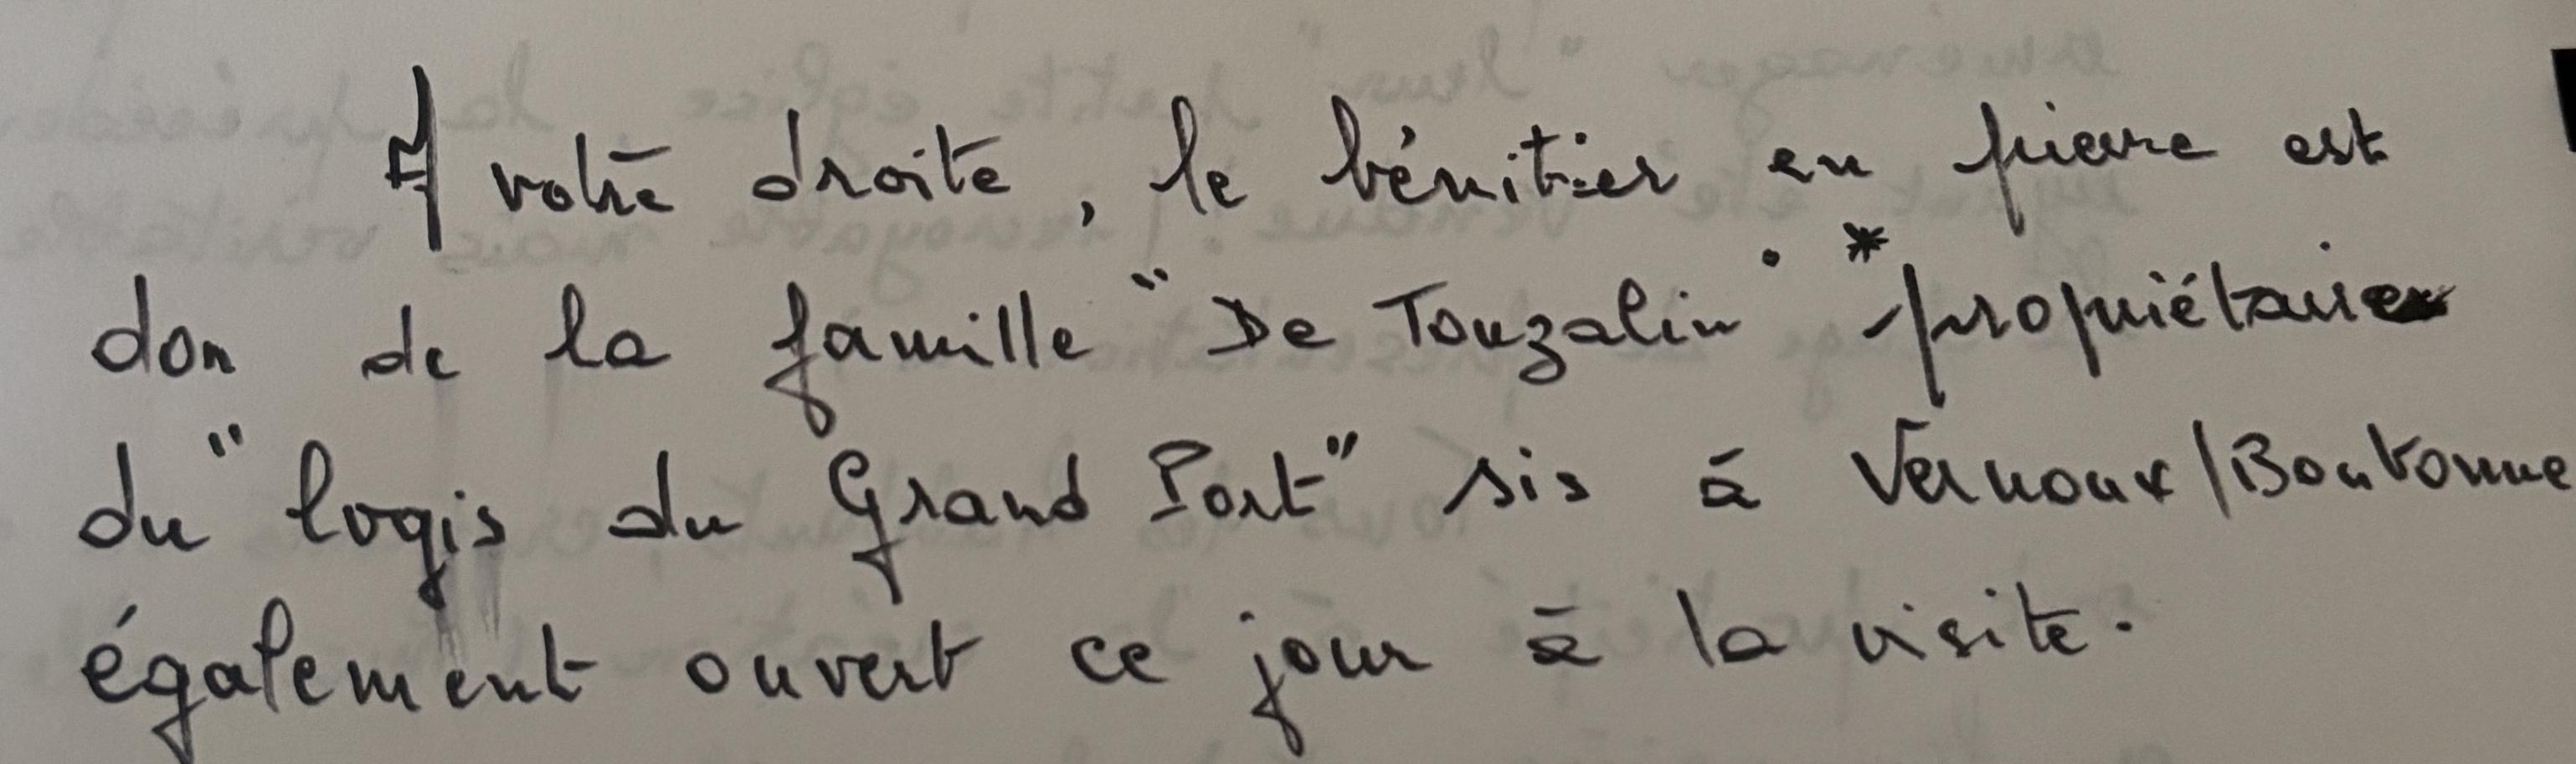 A votre droite, le bénitier en pierre est
don de la famille "De Touzalin" * propriétaire
du "logis du Grand Port" sis à Vernoux/Boutonne
également ouvert ce jour à la visite.